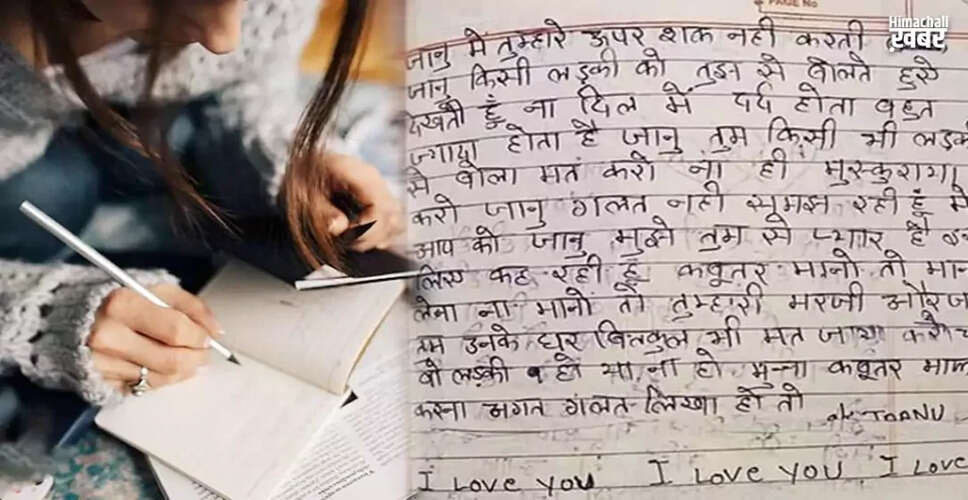 PAGE No
Himachali
खबर
जानु मे तुम्हारे ऊपर शक नही करती
जानु किसी लड़की को तुझ से बोलते हुऐ
देखती हूँ ना दिल में दर्द होता बहुत
ज्यादा होता है जानु तुम किसी भी लड़की
से बोला मत करो ना ही मुस्कुराया
करो जानु गलत नही समझ रही हूँ मे
आप को जानु मुझे तुम से प्यार है
लिए कह रही हूँ कबूतर मानो तो मान
लेना ना मानो तो तुम्हारी मरजी और
तुम उनके घर बिलकुल भी मत जाया करो
वो लड़की हो या ना हो मुन्ना कबूतर माफ
करना अगत गलत लिखा हो तो
I Love you I Love you I Love